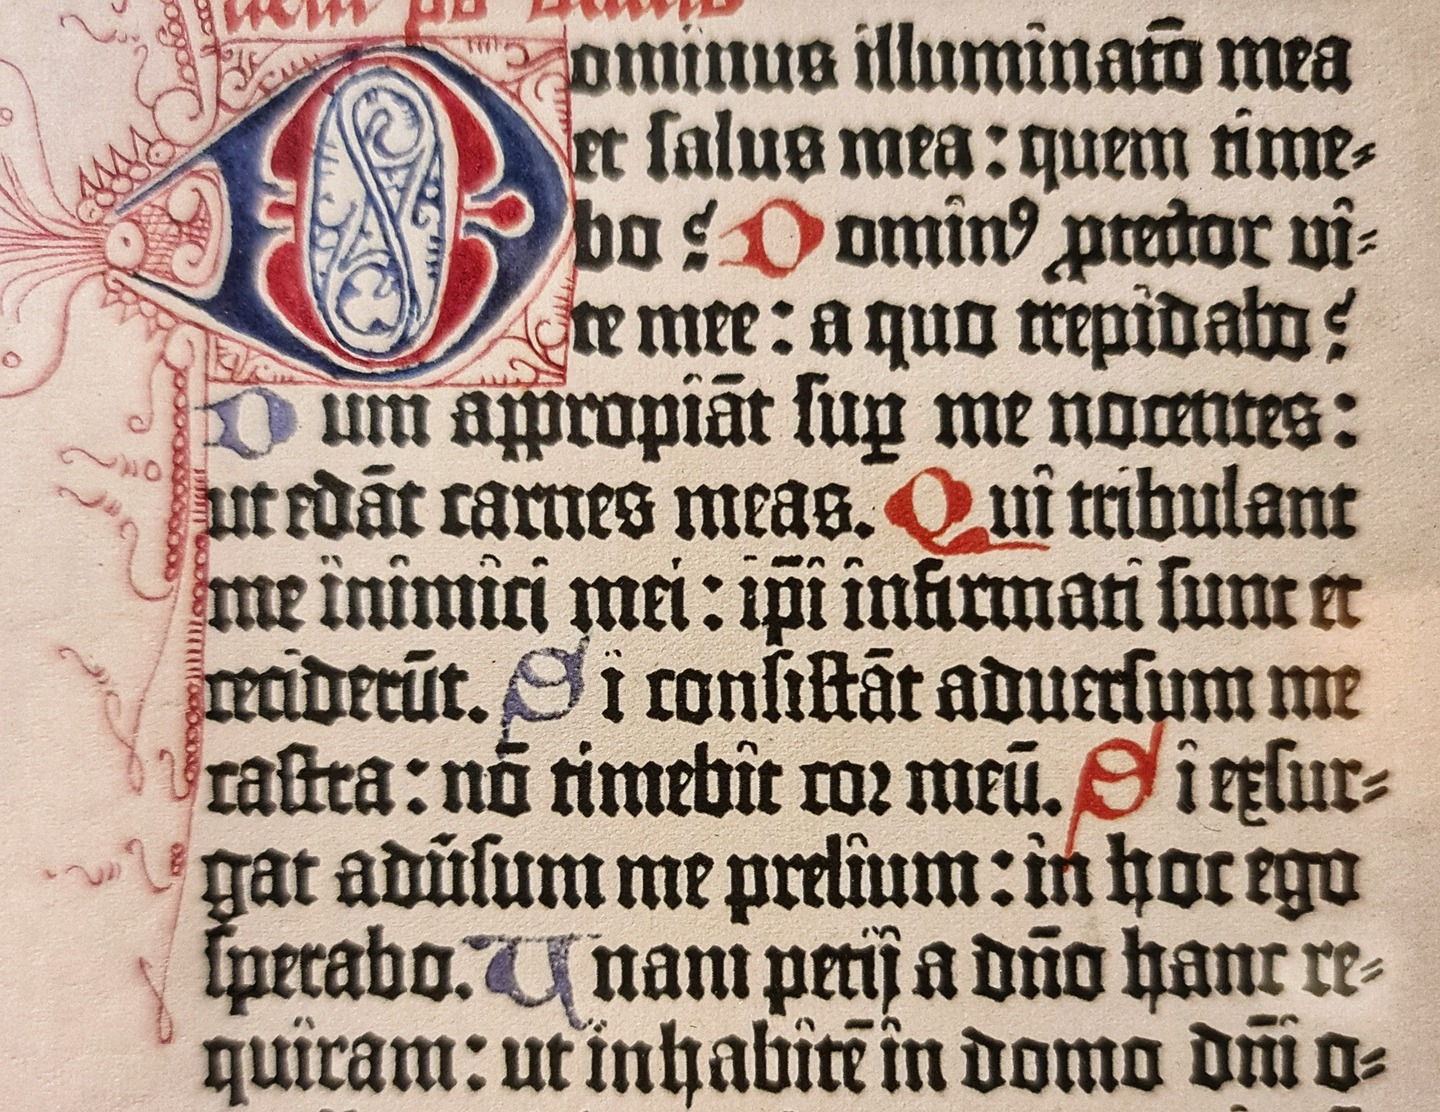 Dominus illuminatō mea
et ſalus mea : quem time⸗
bo ? Dominꝰ ꝓtector vi⸗
te mee : a quo trepidabo ?
Dum appropiāt ſuꝑ me nocentes :
ut edāt carnes meas. Qui tribulant
me inimici mei : ip̄i infirmati ſunt et
ceciderūt. Si conſiſtāt aduerſum me
caſtra : nō timebit coꝛ meū. Si exſur⸗
gat adūſum me prelium : in hoc ego
ſperabo. Unam petij a dn̄o hanc re⸗
quiram : ut inhabitē in domo dn̄i o⸗